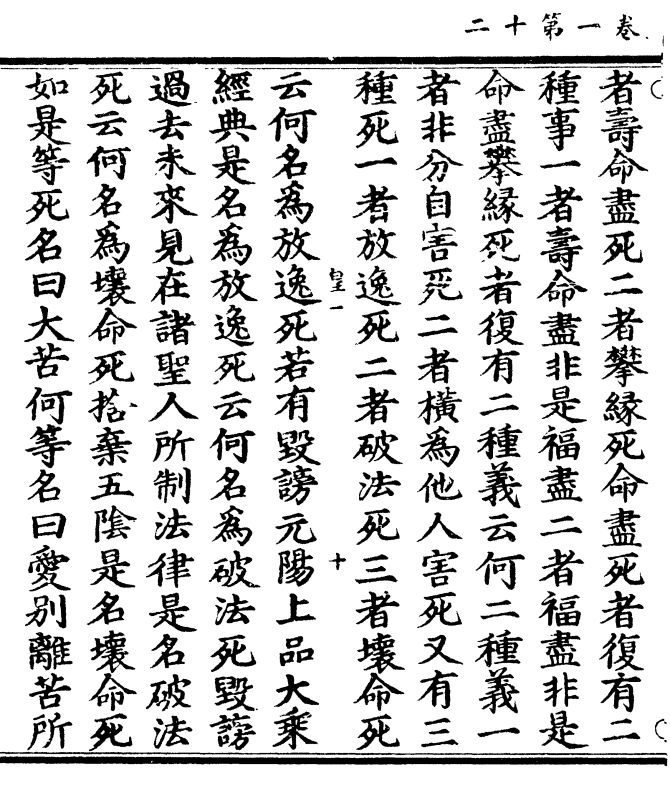 卷一第十二
者壽命盡死二者攀緣死命盡死者復有二
種事一者壽命盡非是福盡二者福盡非是
命盡攀緣死者復有二種義云何二種義一
者非分自害死二者橫為他人害死又有三
種死一者放逸死二者破法死三者壞命死
皇一
十
云何名為放逸死若有毀謗元陽上品大乘
經典是名為放逸死云何名為破法死毀謗
過去未來見在諸聖人所制法律是名破法
死云何名為壞命死捨棄五陰是名壞命死
如是等死名曰大苦何等名曰愛別離苦所